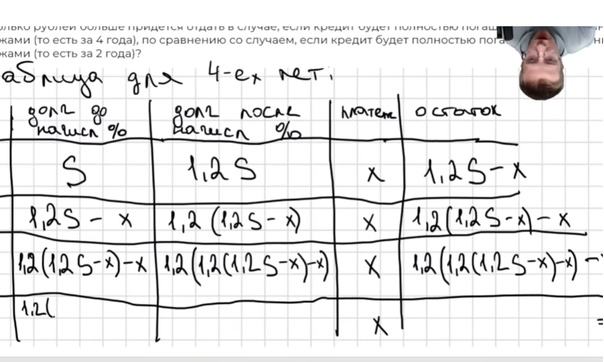 олько рублей больше придется отдать в случае, если кредит будет полностью погаш
жами (то есть за 4 года), по сравнению со случаем, если кредит будет полностью пога
жами (то есть за 2 года)?
аблица для 4-ех лет:
долг до начисл % долг после начисл % платеж остаток
S 1,2S x 1,2S-x
1,2S-x 1,2(1,2S-x) x 1,2(1,2S-x)-x
1,2(1,2S-x)-x 1,2(1,2(1,2S-x)-x) x 1,2(1,2(1,2S-x)-x)-
1,2( x =